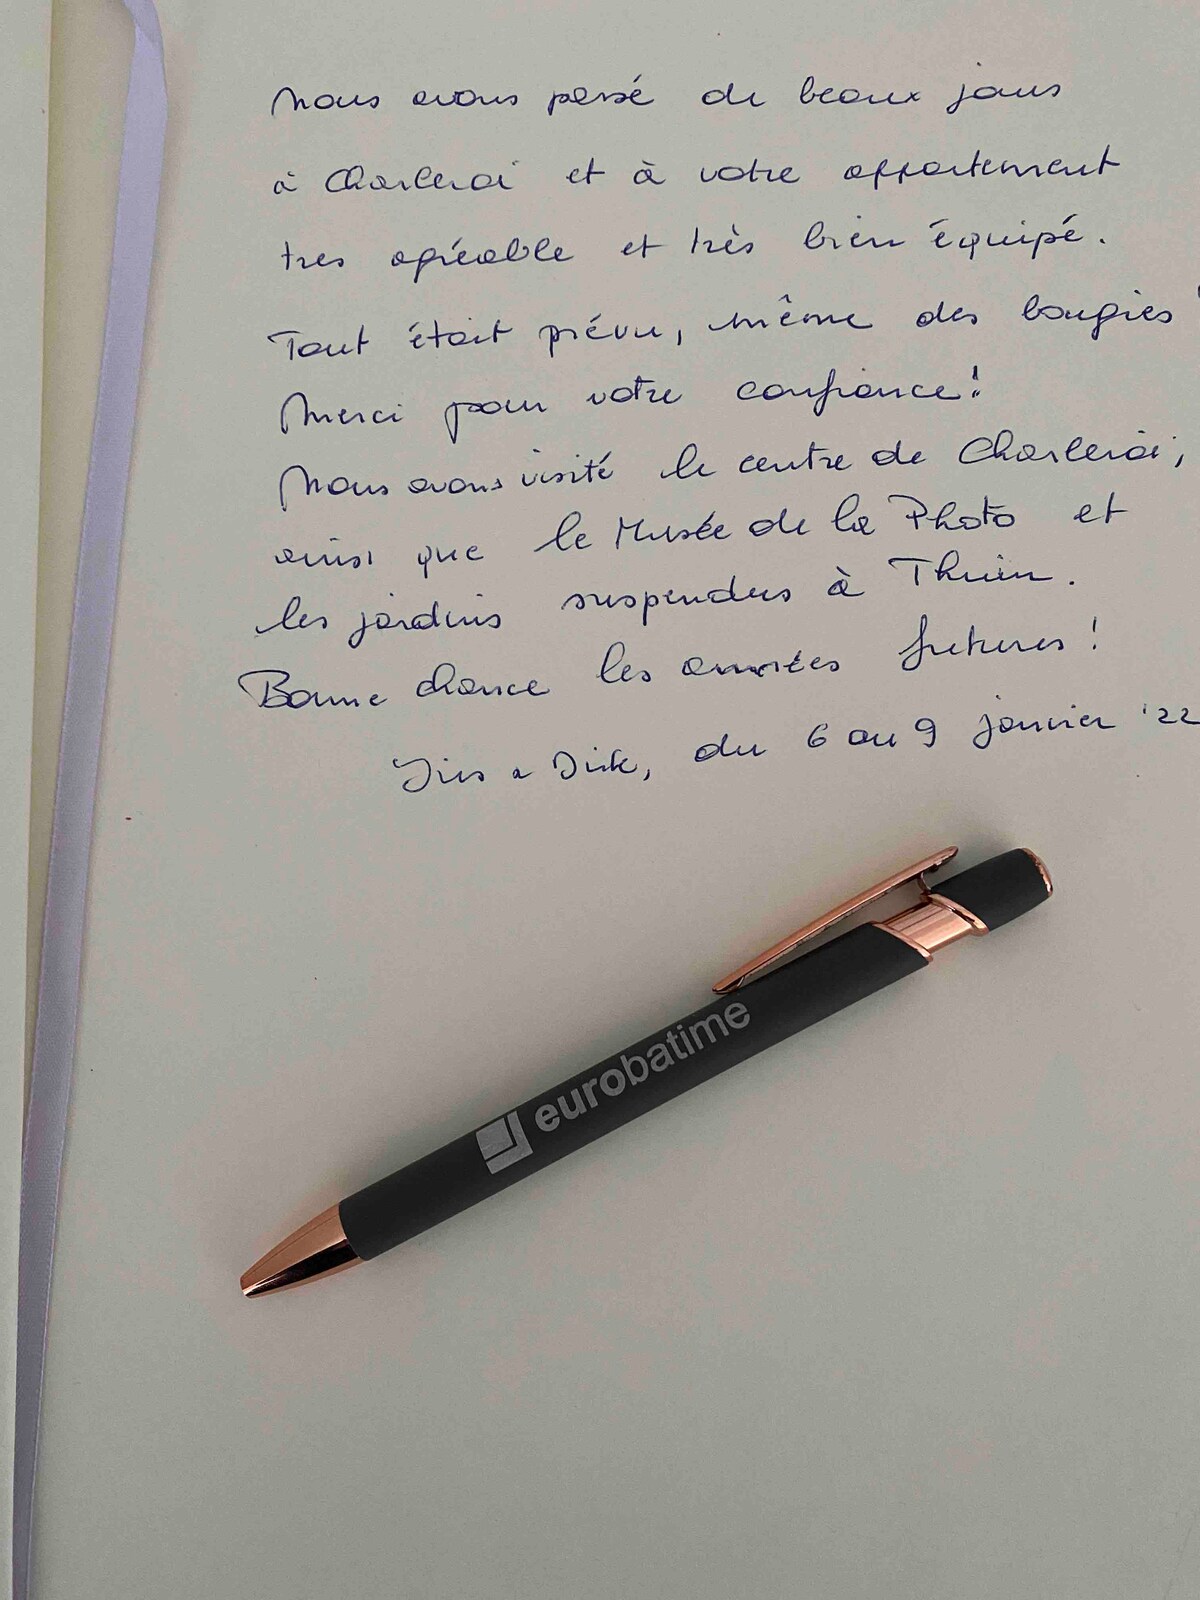 Nous avons passé de beaux jours
à Charleroi et à votre appartement
tres agréable et très bien équipé.
Tout était prévu, même des bougies!
Merci pour votre confiance!
Nous avons visité le centre de Charleroi,
ainsi que le Musée de la Photo et
les jardins suspendus à Thuin.
Bonne chance les années futures!
& Dirk, du 6 au 9 janvier '22
eurobatime